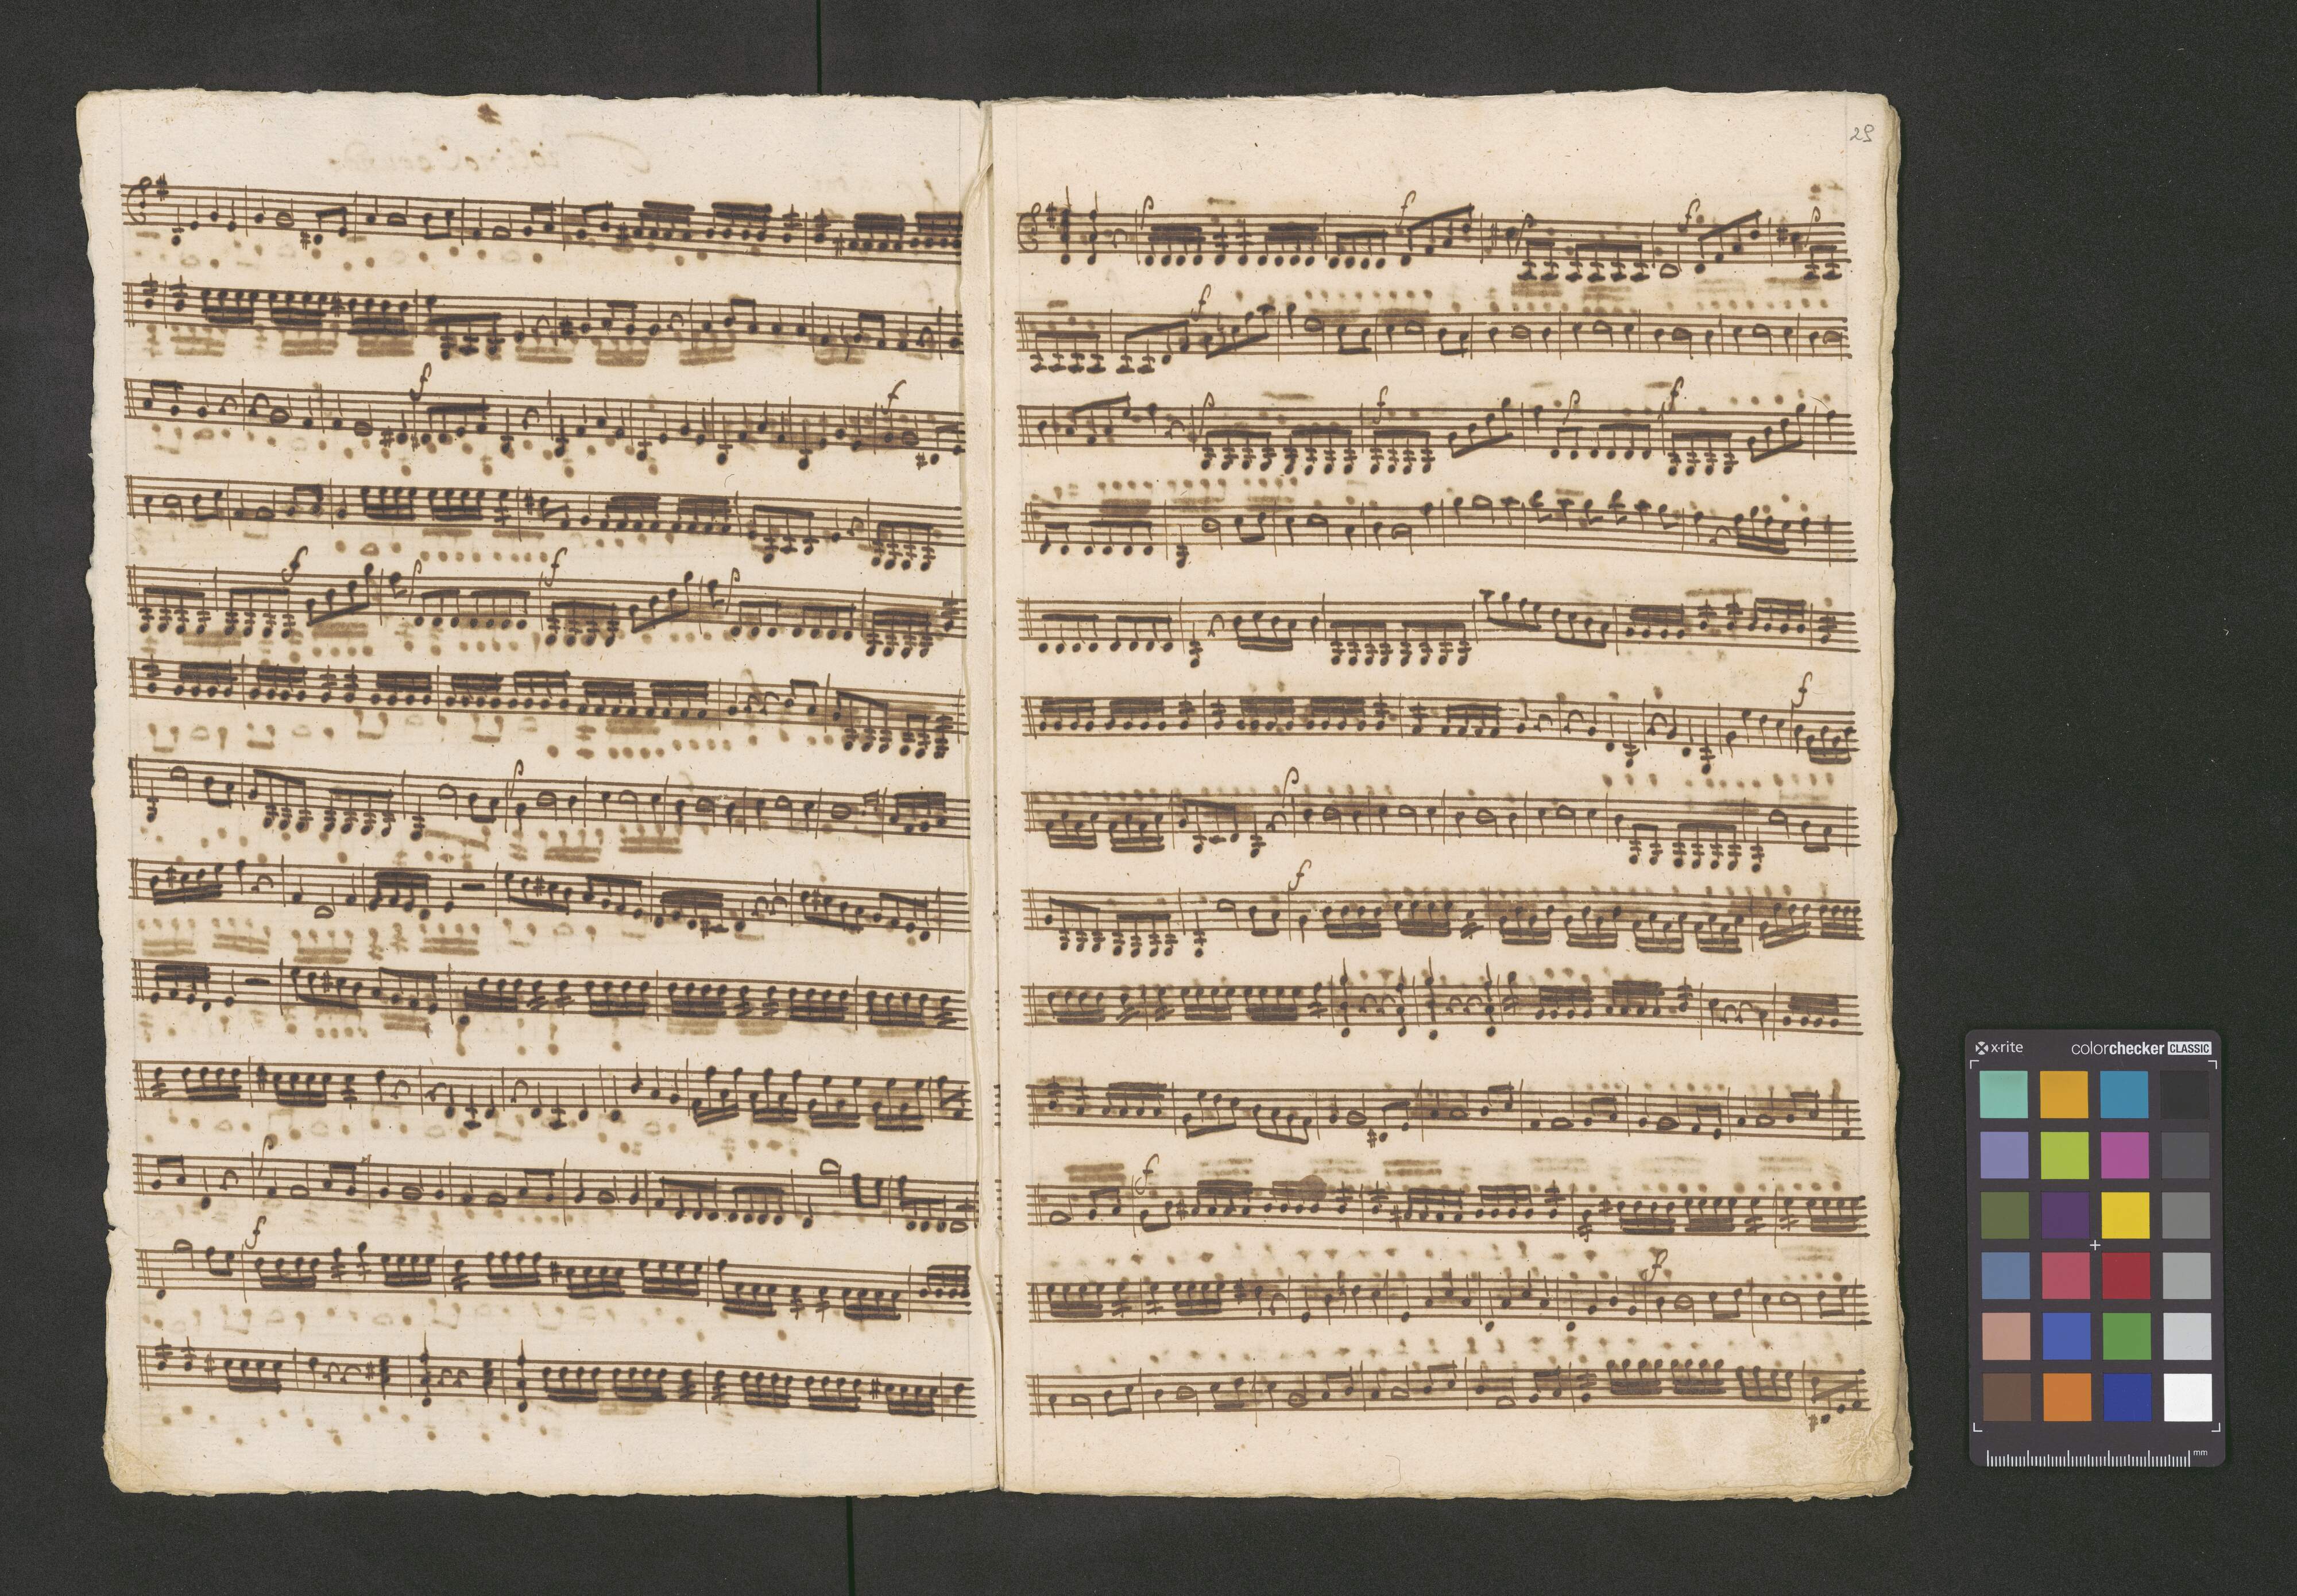 f
f
f
f
p
f
p
p
p
f
29
p
f
p
f
p
f
p
f
p
f
f
p
f
f
f
x-rite
colorchecker CLASSIC
mm